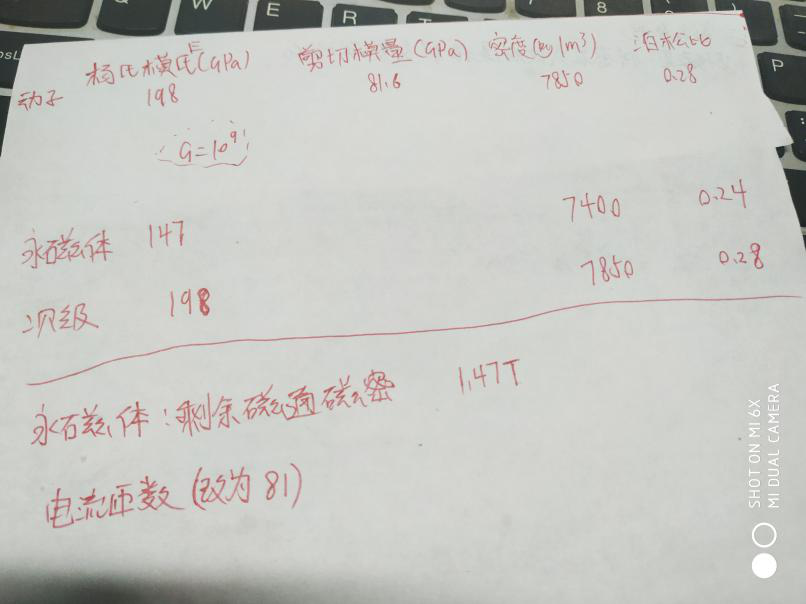 杨氏模长(GPa) 剪切模量(GPa) 密度(kg/m³) 泊松比
动子 198 81.6 7850 0.28
G=10⁹
永磁体 147 7400 0.24
次级 198 7850 0.28
永磁体:剩余磁通磁密 1.47T
电流匝数(改为81)
SHOT ON MI 6X
MI DUAL CAMERA
W
E
R
P